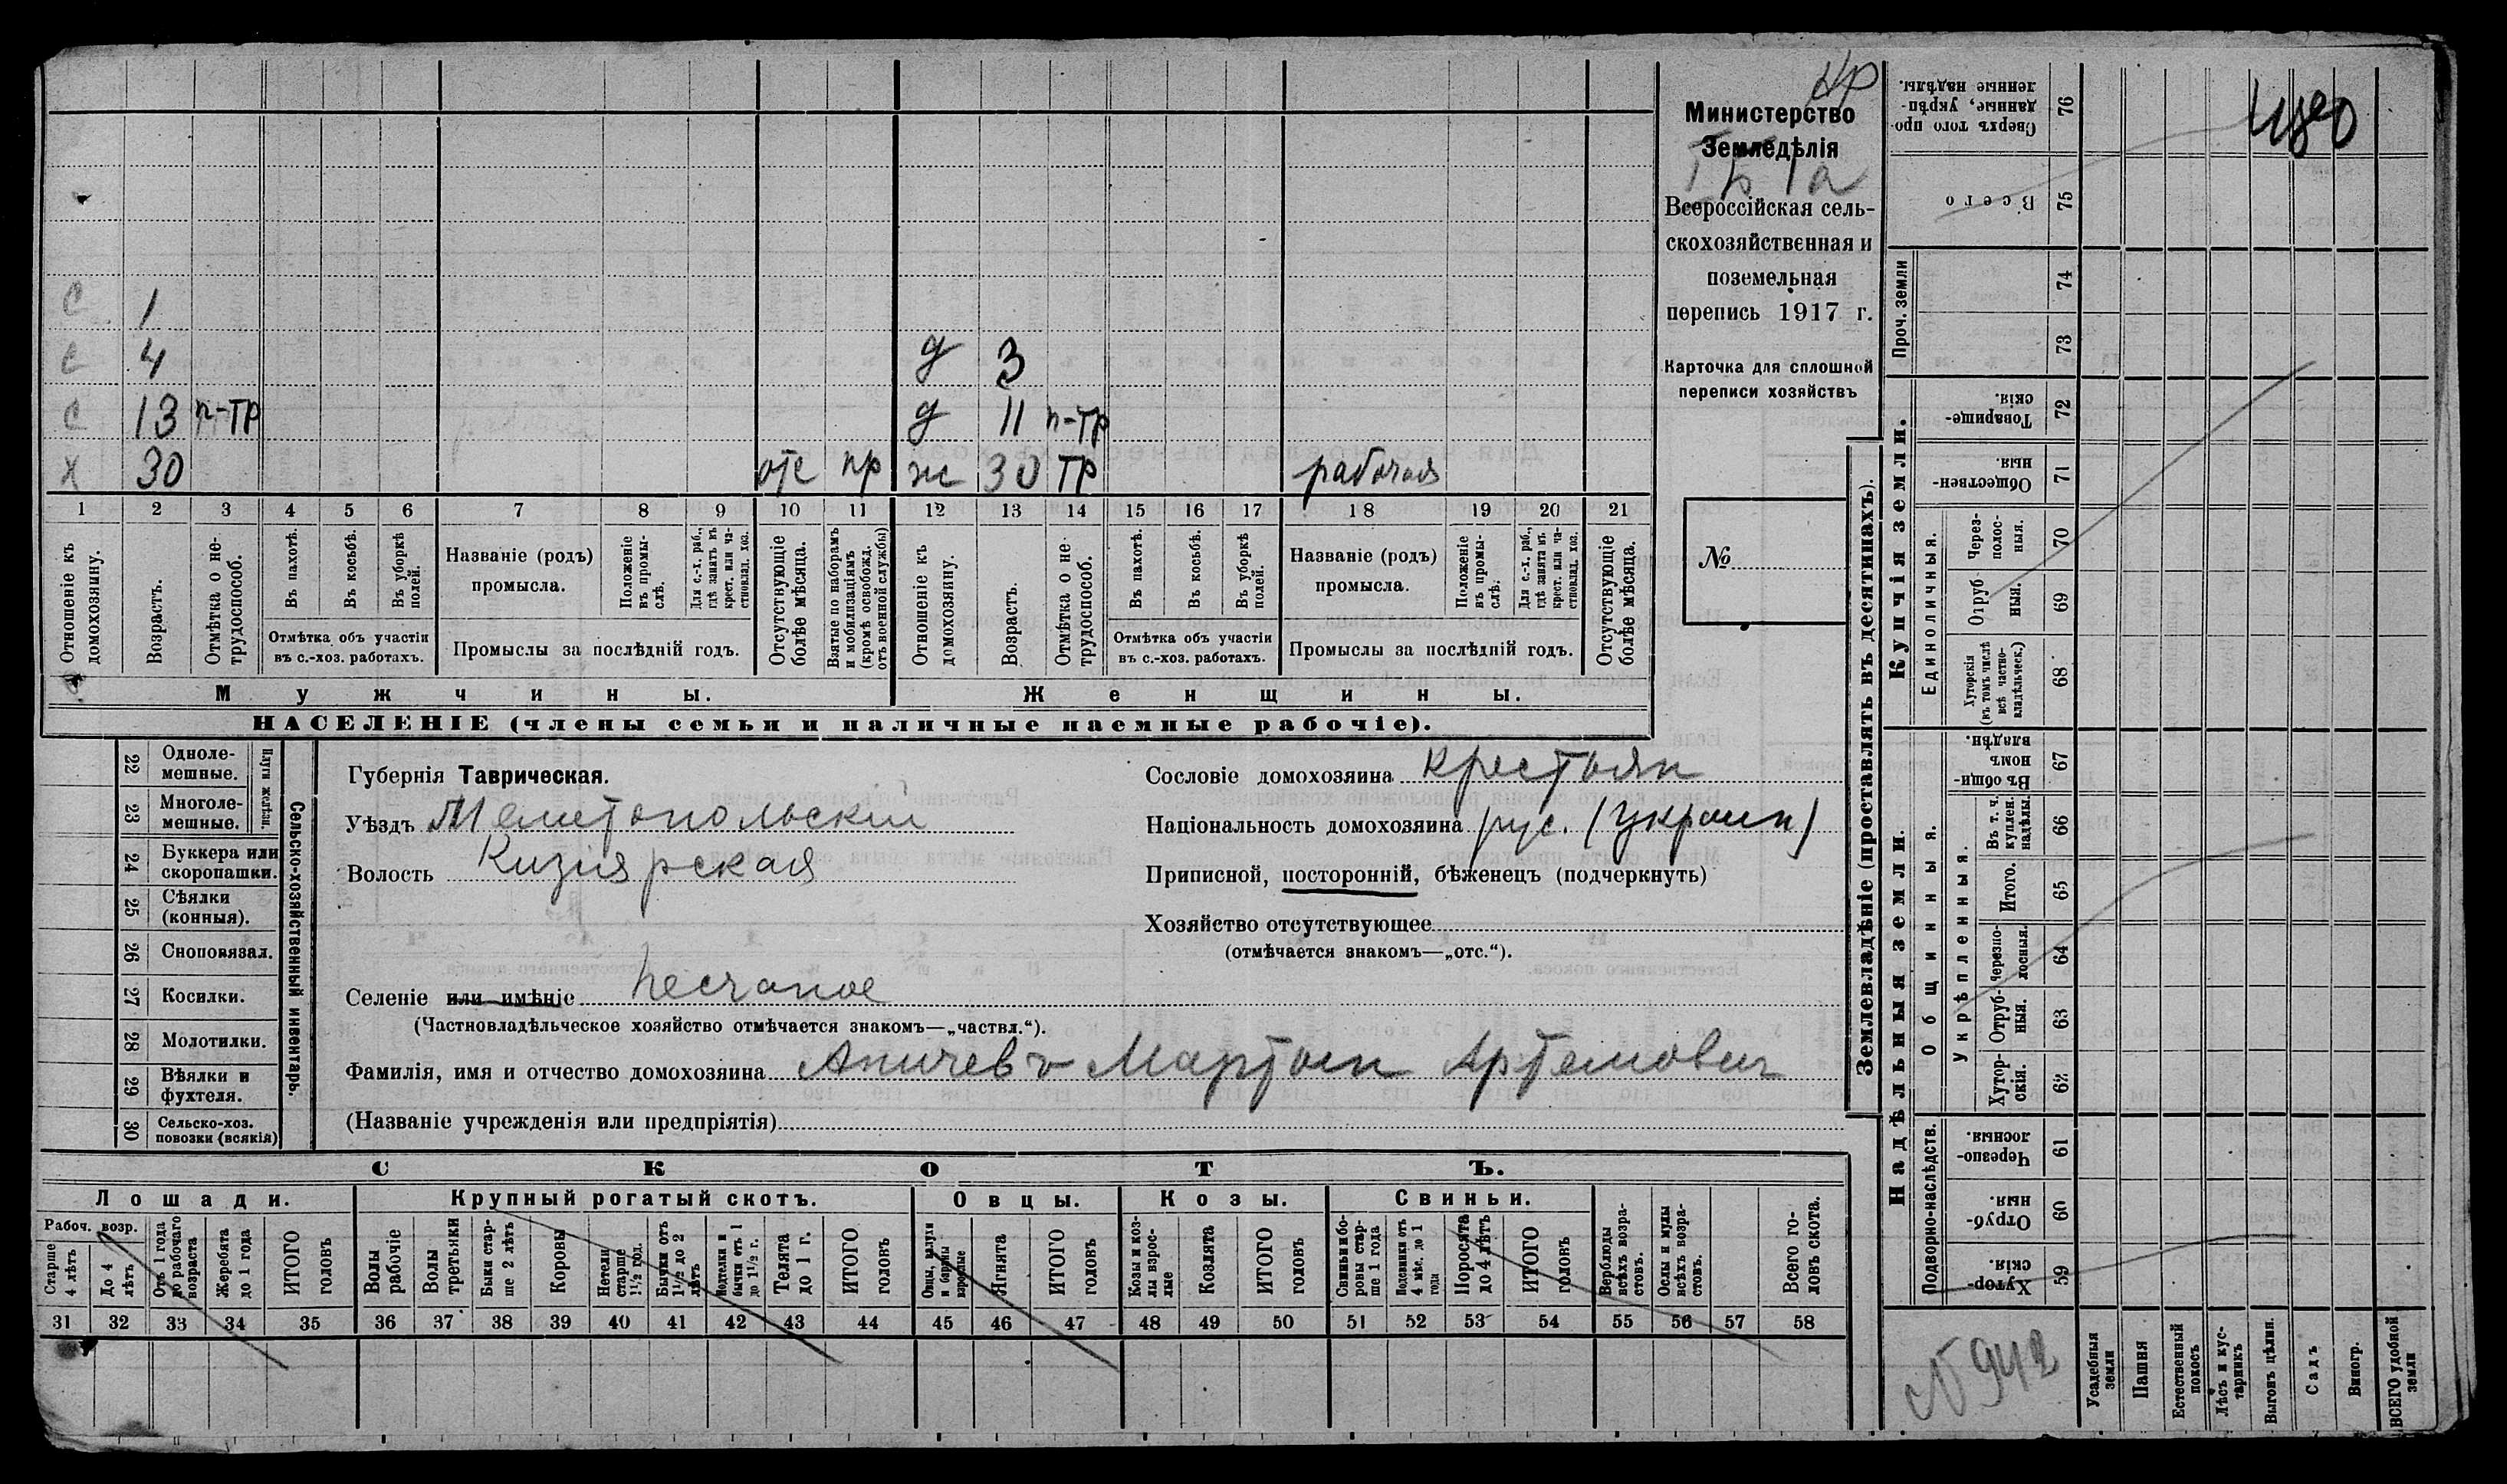 Министерство
Земледѣлія
Всероссійская сель-
скохозяйственная и
поземельная
перепись 1917 г.
Карточка для сплошной
переписи хозяйствъ
№
С 1
С 4 д 3
С 13 п-тр д 11 п-тр
Х 30 отс пр ж 30 тр рабочая
1 2 3 4 5 6 7 8 9 10 11 12 13 14 15 16 17 18 19 20 21
Отношеніе къ домохозяину.
Возрастъ.
Отмѣтка о не-трудоспособ.
Въ пахотѣ.
Въ косьбѣ.
Въ уборкѣ полей.
Отмѣтка объ участіи
въ с.-хоз. работахъ.
Названіе (родъ)
промысла.
Положеніе въ промы-слѣ.
Для с.-х. раб., гдѣ занятъ въ крест. или ча-стновлад. хоз.
Промыслы за послѣдній годъ.
Отсутствующіе болѣе мѣсяца.
Взятые по наборамъ и мобилизаціямъ (кромѣ освобожд. отъ военной службы)
Отношеніе къ домохозяину.
Возрастъ.
Отмѣтка о не-трудоспособ.
Въ пахотѣ.
Въ косьбѣ.
Въ уборкѣ полей.
Отмѣтка объ участіи
въ с.-хоз. работахъ.
Названіе (родъ)
промысла.
Положеніе въ промы-слѣ.
Для с.-х. раб., гдѣ занята въ крест. или ча-стновлад. хоз.
Промыслы за послѣдній годъ.
Отсутствующіе болѣе мѣсяца.
Мужчины. Женщины.
НАСЕЛЕНІЕ (члены семьи и наличные наемные рабочіе).
22 Одноле-мешные.
23 Многоле-мешные.
Плуги желѣзн.
24 Буккера или скоропашки.
25 Сѣялки (конныя).
26 Сноповязал.
27 Косилки.
28 Молотилки.
29 Вѣялки и фухтеля.
30 Сельско-хоз. повозки (всякія)
Сельско-хозяйственный инвентарь.
Губернія Таврическая.
Уѣздъ Мелитопольскій
Волость Кизіярская
Селеніе или имѣніе Песчаное
(Частновладѣльческое хозяйство отмѣчается знакомъ—„частвл.“).
Фамилія, имя и отчество домохозяина Аничевъ Мартын Артемович
(Названіе учрежденія или предпріятія)
Сословіе домохозяина крестьян
Національность домохозяина рус. (украин)
Приписной, посторонній, бѣженецъ (подчеркнуть)
Хозяйство отсутствующее
(отмѣчается знакомъ—„отс.“).
СКОТЪ.
Лошади. Крупный рогатый скотъ. Овцы. Козы. Свиньи.
Рабоч. возр.
Старше 4 лѣтъ
До 4 лѣтъ
Отъ 1 года до рабочаго возраста
Жеребята до 1 года
ИТОГО головъ
Волы рабочіе
Волы третьяки
Быки стар-ше 2 лѣтъ
Коровы
Нетели старше 1½ год.
Бычки отъ 1½ до 2 лѣтъ
Подтелки и бычки отъ 1 до 1½ г.
Телята до 1 г.
ИТОГО головъ
Овцы, валухи и бараны взрослые
Ягнята
ИТОГО головъ
Козы и коз-лы взрос-лые
Козлята
ИТОГО головъ
Свиньи и бо-ровы стар-ше 1 года
Подсвинки отъ 4 мѣс. до 1 года
Поросята до 4 лѣтъ
ИТОГО головъ
Верблюды всѣхъ возра-стовъ.
Ослы и мулы всѣхъ возра-стовъ.
Всего го-ловъ скота.
31 32 33 34 35 36 37 38 39 40 41 42 43 44 45 46 47 48 49 50 51 52 53 54 55 56 57 58
Землевладѣніе (проставлять въ десятинахъ).
Купчія земли.
Надѣльныя земли.
Сверхъ того про-данные, укрѣп-ленные надѣлы. 76
Всего 75
Проч. земли 74
73
Товарище-скія. 72
Обществен-ныя. 71
Единоличныя.
Через-полос-ныя. 70
Отруб-ныя. 69
Хуторскія (въ томъ числѣ всѣ частно-владѣльческ.) 68
Общинныя.
Въ общи-номъ владѣн. 67
Укрѣпленныя.
Въ т. ч. куплен. надѣлы. 66
Итого. 65
Черезпо-лосныя. 64
Отруб-ныя. 63
Хутор-скія. 62
Подворно-наслѣдств.
Черезпо-лосныя. 61
Отруб-ныя. 60
Хутор-скія. 59
№ 942
Усадебныя земли
Пашня
Естественный покосъ
Лѣсъ и кус-тарникъ
Выгонъ цѣлин.
Садъ
Виногр.
ВСЕГО удобной земли